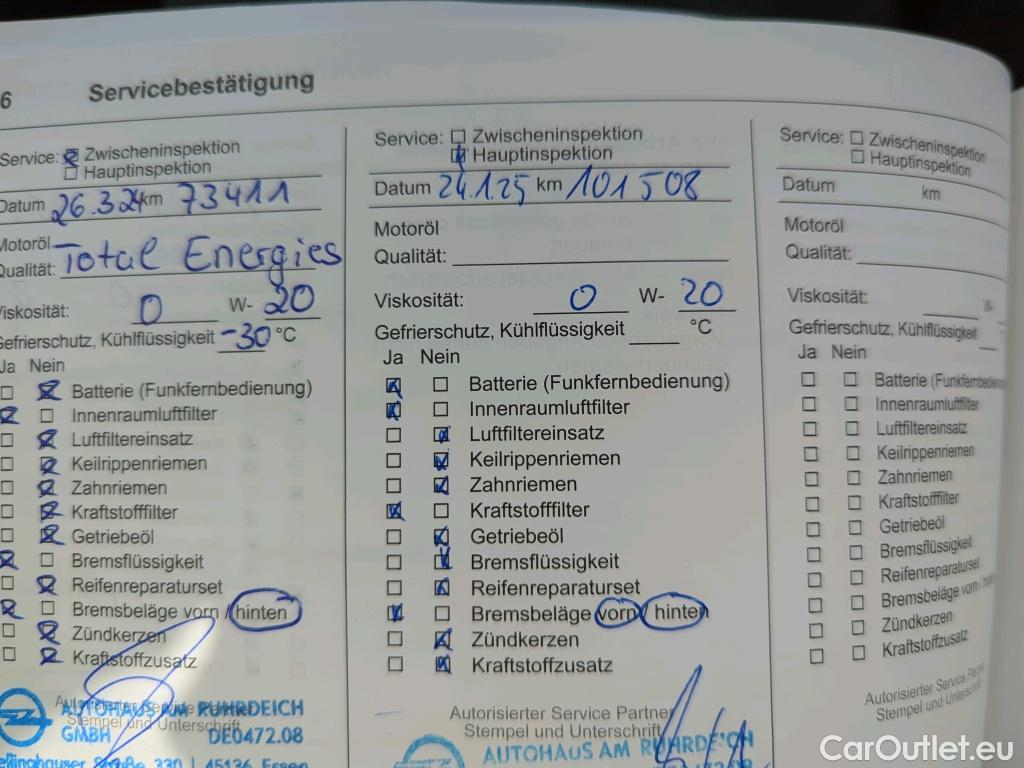 6 Servicebestätigung
Service: Zwischeninspektion
Hauptinspektion
Datum 26.3.24 km 73411
Motoröl
Qualität: Total Energies
Viskosität: 0 W- 20
Gefrierschutz, Kühlflüssigkeit -30 °C
Ja Nein
Batterie (Funkfernbedienung)
Innenraumluftfilter
Luftfiltereinsatz
Keilrippenriemen
Zahnriemen
Kraftstofffilter
Getriebeöl
Bremsflüssigkeit
Reifenreparaturset
Bremsbeläge vorn / hinten
Zündkerzen
Kraftstoffzusatz
Autorisierter Service
Stempel und Unterschrift
AUTOHAUS AM RUHRDEICH
GMBH DE0472.08
45136 Essen
Service: Zwischeninspektion
Hauptinspektion
Datum 24.1.25 km 101508
Motoröl
Qualität:
Viskosität: 0 W- 20
Gefrierschutz, Kühlflüssigkeit °C
Ja Nein
Batterie (Funkfernbedienung)
Innenraumluftfilter
Luftfiltereinsatz
Keilrippenriemen
Zahnriemen
Kraftstofffilter
Getriebeöl
Bremsflüssigkeit
Reifenreparaturset
Bremsbeläge vorn / hinten
Zündkerzen
Kraftstoffzusatz
Autorisierter Service Partner
Stempel und Unterschrift
AUTOHAUS AM RUHRDEICH
Service: Zwischeninspektion
Hauptinspektion
Datum km
Motoröl
Qualität:
Viskosität: W-
Gefrierschutz, Kühlflüssigkeit
Ja Nein
Batterie (Funkfernbedienung
Innenraumluftfilter
Luftfiltereinsatz
Keilrippenriemen
Zahnriemen
Kraftstofffilter
Getriebeöl
Bremsflüssigkeit
Reifenreparaturset
Bremsbeläge vorn /
Zündkerzen
Kraftstoffzusatz
Autorisierter Service Partner
Stempel und Unterschrift
CarOutlet.eu